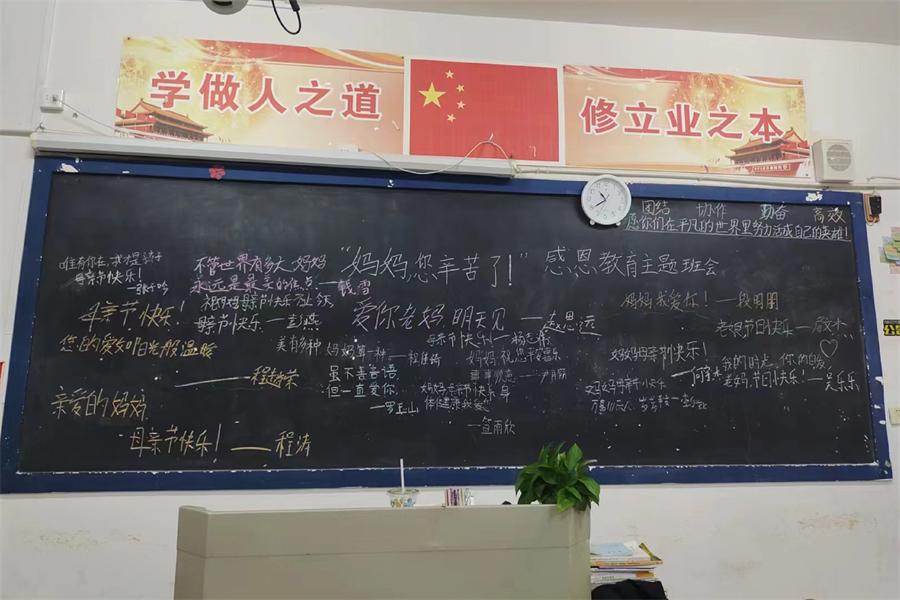 学做人之道
修立业之本
团结 协作 勤奋 高效
愿你们在平凡的世界里努力活成自己的英雄!
"妈妈,您辛苦了!" 感恩教育主题班会
母亲节快乐!
不管世界有多大,妈妈
永远是最美的焦点.——钱雪
祝妈妈母亲节快乐
母亲节快乐.——彭燕
母亲节快乐!
您的爱如阳光般温暖
亲爱的妈妈
母亲节快乐!——程涛
美有多种
妈妈第一种
虽不善言语
但一直爱你.
——罗玉山
爱你老妈,明天见——赵恩远
母亲节快乐!
妈妈祝您节日快乐
妈妈母亲节快乐
身体健康我爱你
——宣雨欣
妈妈我爱你!——段明明
妈妈母亲节快乐!
妈妈母亲节快乐
老妈,节日快乐!——吴乐乐